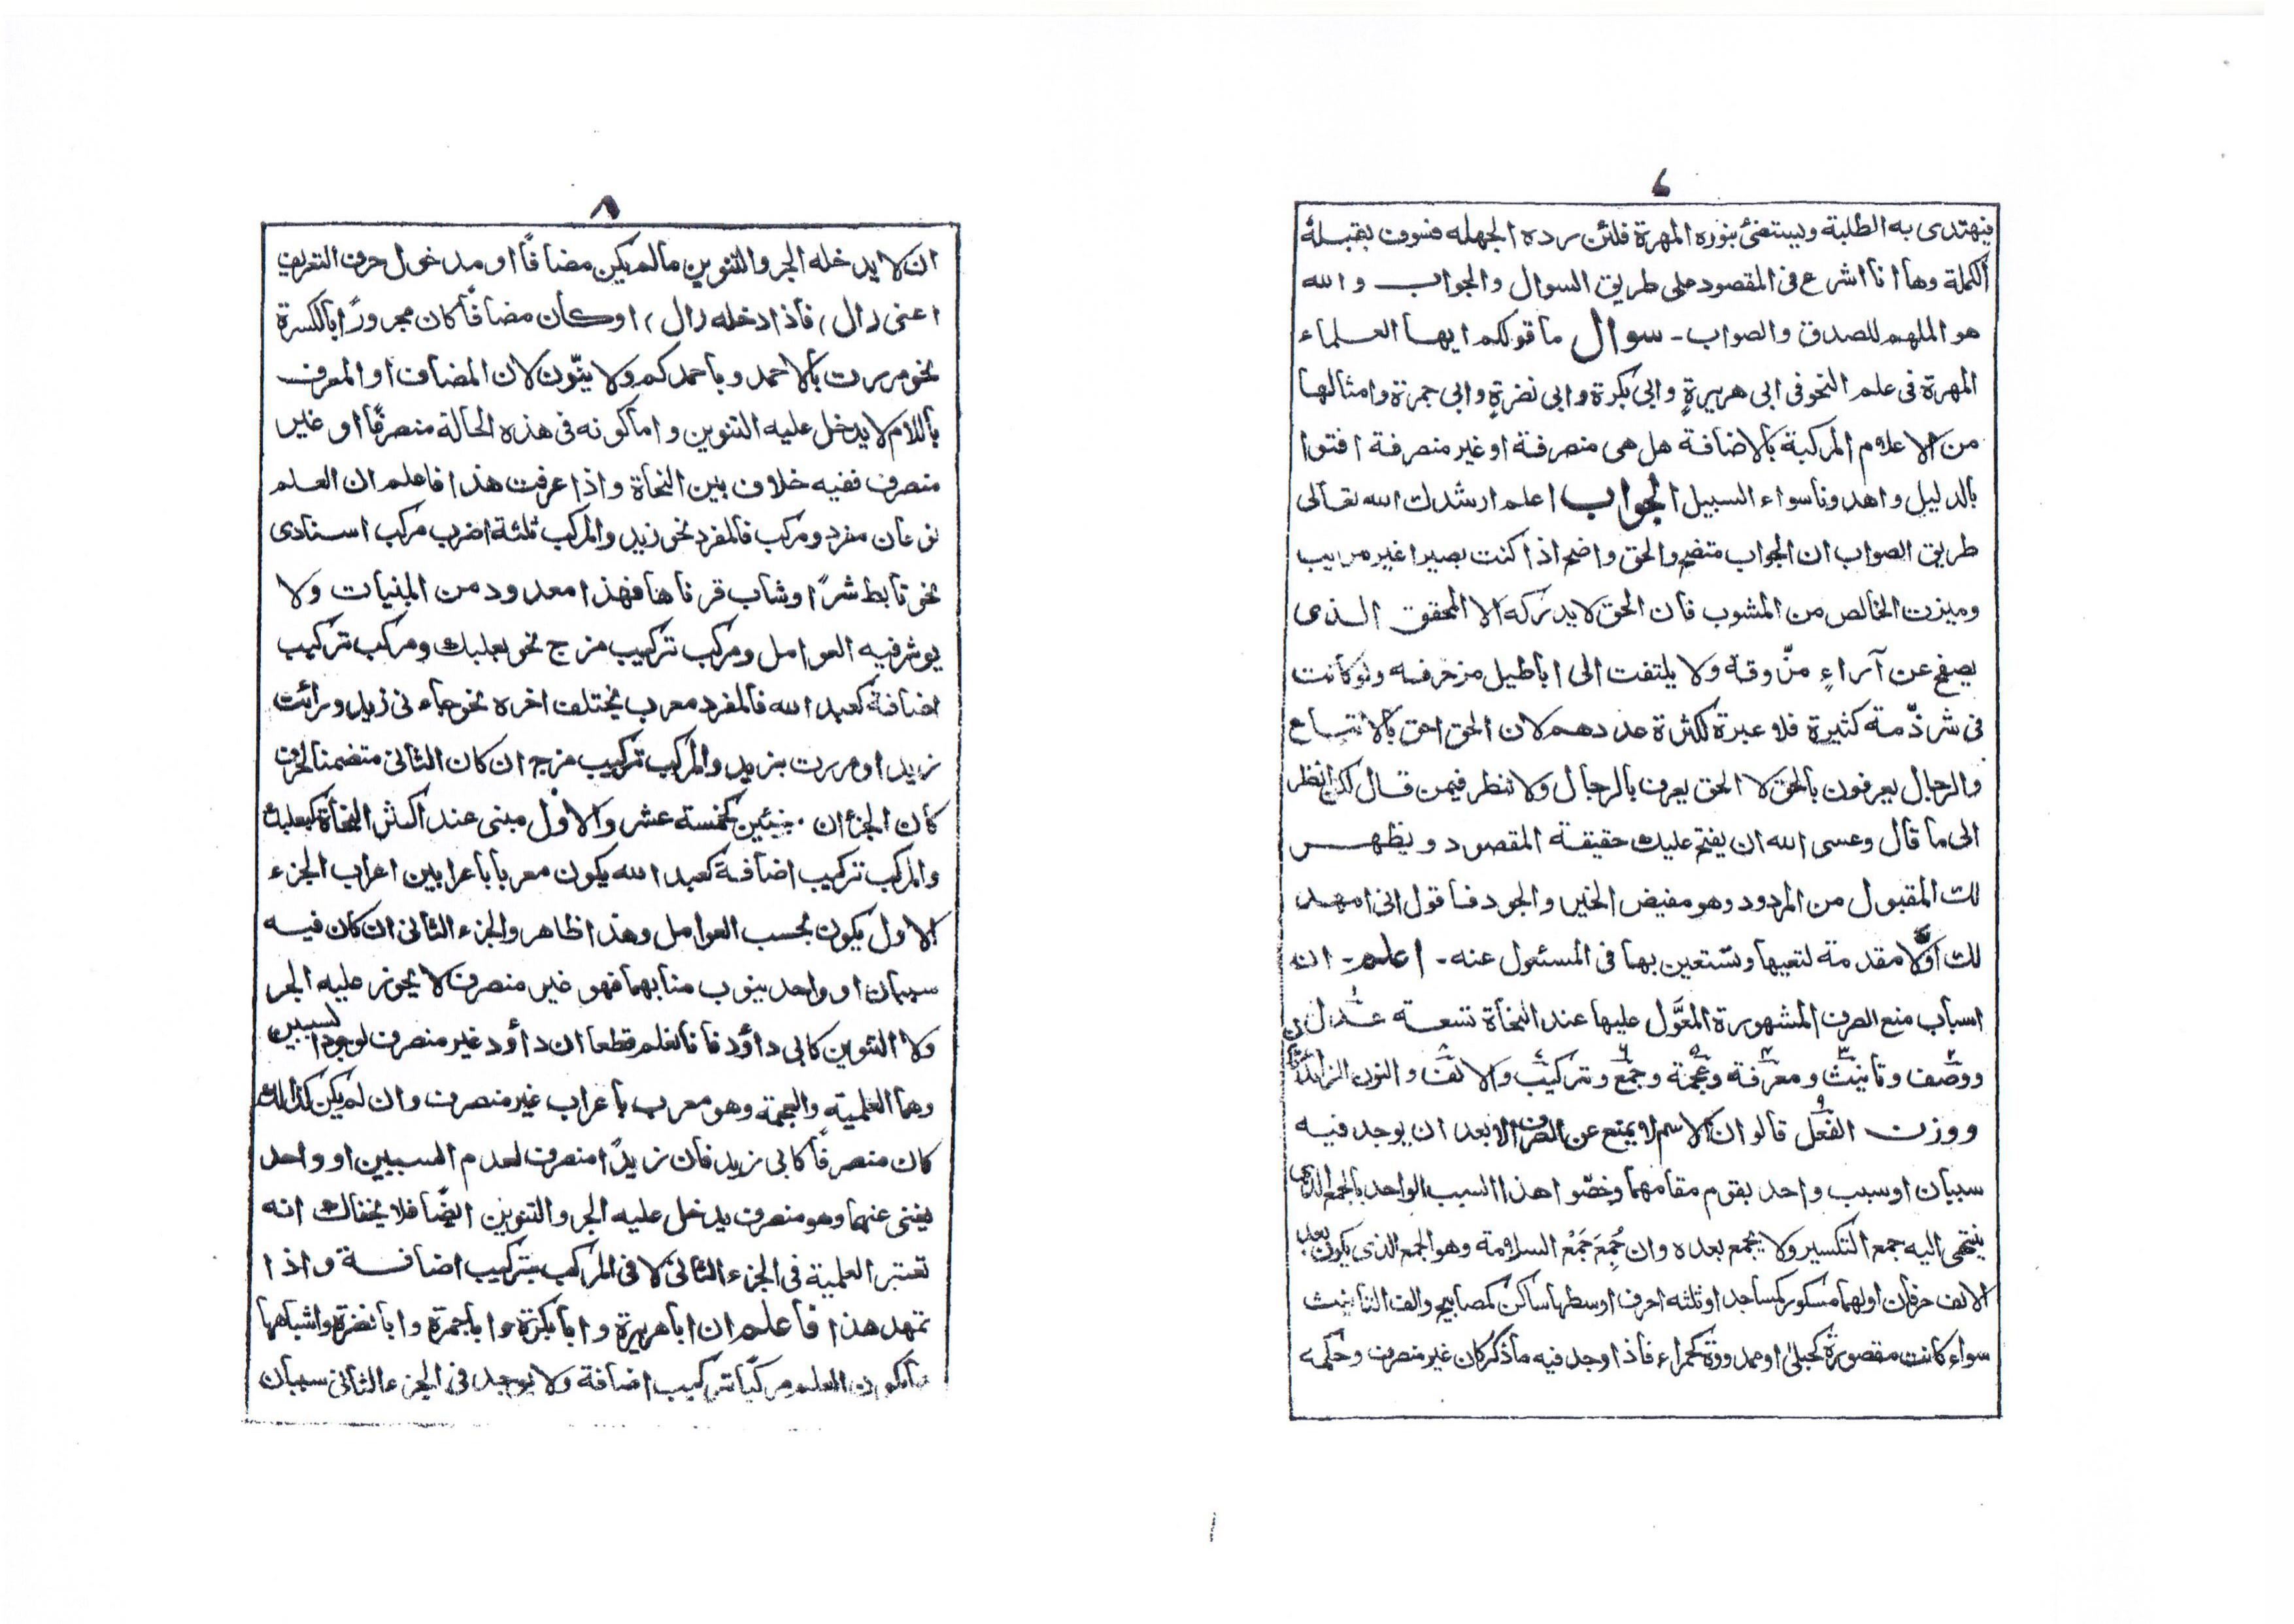 ٧
فيهتدى به الطلبة ويستضئ بنوره المهرة فلئن رده الجهله فسوف يقبله
الكملة وها انا اشرع فى المقصود على طريق السوال والجواب والله
هو الملهم للصدق والصواب - سوال ما قولكم ايها العلماء
المهرة فى علم النحو فى ابى هريرةٍ وابى بكرة وابى نضرةٍ وابى جمرة وامثالها
من الاعلام المركبة بالاضافة هل هى منصرفة او غير منصرفة افتوا
بالدليل واهدونا سواء السبيل الجواب اعلم ارشدك الله تعالى
طريق الصواب ان الجواب متضح والحق واضح اذا كنت بصيرا غير مريب
وميزت الخالص من المشوب فان الحق لا يدركه الا المحقق الذى
يصفح عن آراءٍ مزّوقة ولا يلتفت الى اباطيل مزخرفه ولو كانت
فى شرذّمة كثيرة فلا عبرة لكثرة عددهم لان الحق احق بالاتباع
والرجال يعرفون بالحق لا الحق يعرف بالرجال ولا تنظر فيمن قال لكن انظر
الى ما قال وعسى الله ان يفتح عليك حقيقة المقصود ويظهر
لك المقبول من المردود وهو مفيض الخير والجود فاقول انى امهد
لك اوّلا مقدمة لتعيها وتستعين بها فى المسئول عنه - اعلم - انه
اسباب منع الصرف المشهورة المعَوّل عليها عند النحاة تسعة عدل
ووصف وتانيث ومعرفة وعجمة وجمع وتركيب والالف والنون الزائدتان
ووزن الفعل قالوا ان الاسم لا يمتنع عن الصرف الا بعد ان يوجد فيه
سببان او سبب واحد يقوم مقامهما وخصّوا هذا السبب الواحد بالجمع الذى
ينتهى اليه جمع التكسير ولا يجمع بعده وان جُمِعَ جَمْعُ السلامة وهو الجمع الذى يكون بعد
الالف حرفان اولهما مكسور كمساجد او ثلثه احرف اوسطها ساكن كمصابيح والف التانيث
سواء كانت مقصورة كحبلىٰ او ممدودة كحمراء فاذا وجد فيه ما ذكر كان غير منصرف وحكمه
٨
ان لا يدخله الجر والتنوين مالم يكن مضافًا او مدخول حرف التعريف
اعنى (ال) فاذا دخله (ال) او كان مضافًا كان مجرورًا بالكسرة
نحو مررت بالاحمد وباحمدكم ولا ينّون لان المضاف او المعرف
باللام لا يدخل عليه التنوين واما كونه فى هذه الحالة منصرفًا او غير
منصرف ففيه خلاف بين النحاة واذا عرفت هذا فاعلم ان العلم
نوعان مفرد ومركب فالمفرد نحو زيد والمركب ثلثة اضرب مركب اسنادى
نحو تابط شرًا وشاب قرناها فهذا معدود من المبنيات ولا
يوثر فيه العوامل ومركب تركيب مزج نحو بعلبك ومركب تركيب
اضافة كعبد الله فالمفرد معرب يختلف اخره نحو جاءنى زيد ورائت
زيدا ومررت بزيد والمركب تركيب مزج ان كان الثانى متضمنا لحرف
كان الجزءان مبنيين كخمسة عشر والاول مبنى عند اكثر النحاة كبعلبك
والمركب تركيب اضافة كعبد الله يكون معربا باعرابين اعراب الجزء
الاول يكون بحسب العوامل وهذا ظاهر والجزء الثانى ان كان فيه
سببان او واحد ينوب منابهما فهو غير منصرف لا يجوز عليه الجر
ولا التنوين كابى داؤد فانا نعلم قطعا ان داؤد غير منصرف لوجود السببين
وهما العلمية والعجمة وهو معرب باعراب غير منصرف وان لم يكن كذالك
كان منصرفًا كابى زيد فان زيدًا منصرف لعدم السببين او واحد
يغنى عنهما وهو منصرف يدخل عليه الجر والتنوين ايضًا فلا يخفاك انه
تعتبر العلمية فى الجزء الثانى لا فى المركب بتركيب اضافة واذا
تمهد هذا فاعلم ان اباهريرة وابابكرة واباجمرة وابانضرة واشباهها
العلم مركبًا تركيب اضافة ولا يوجد فى الجزء الثانى سببان